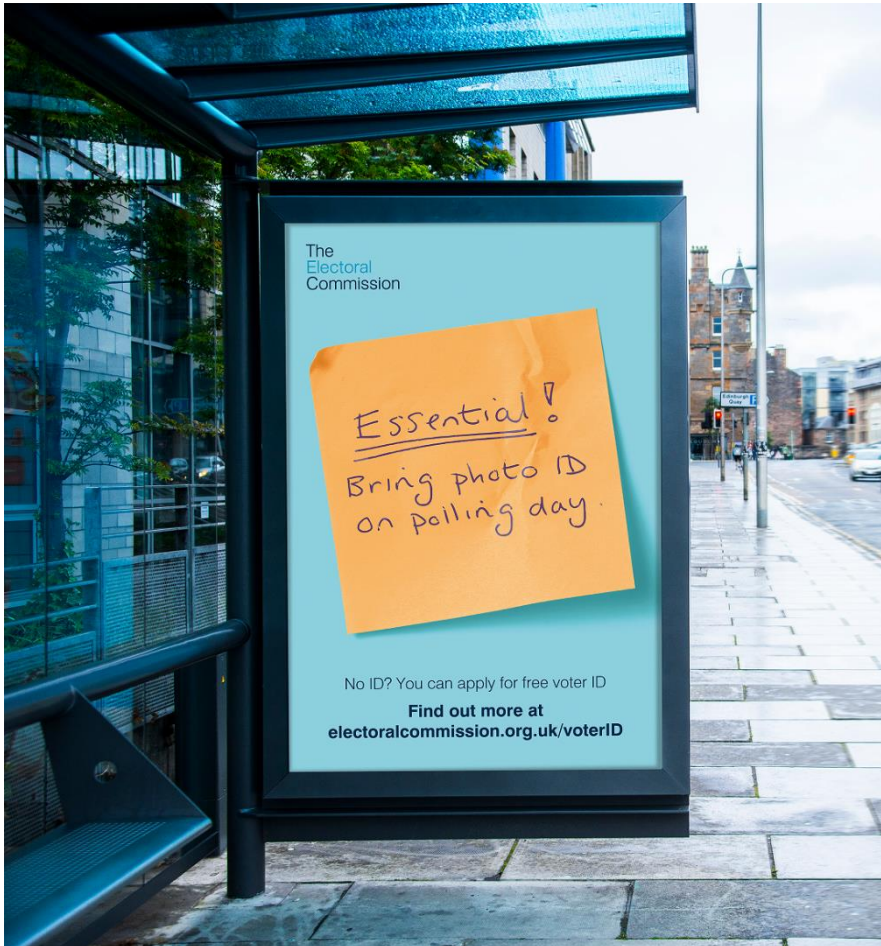 The
Electoral
Commission
Essential!
Bring photo ID
on polling day.
No ID? You can apply for free voter ID
Find out more at
electoralcommission.org.uk/voterID
Edinburgh
Quay